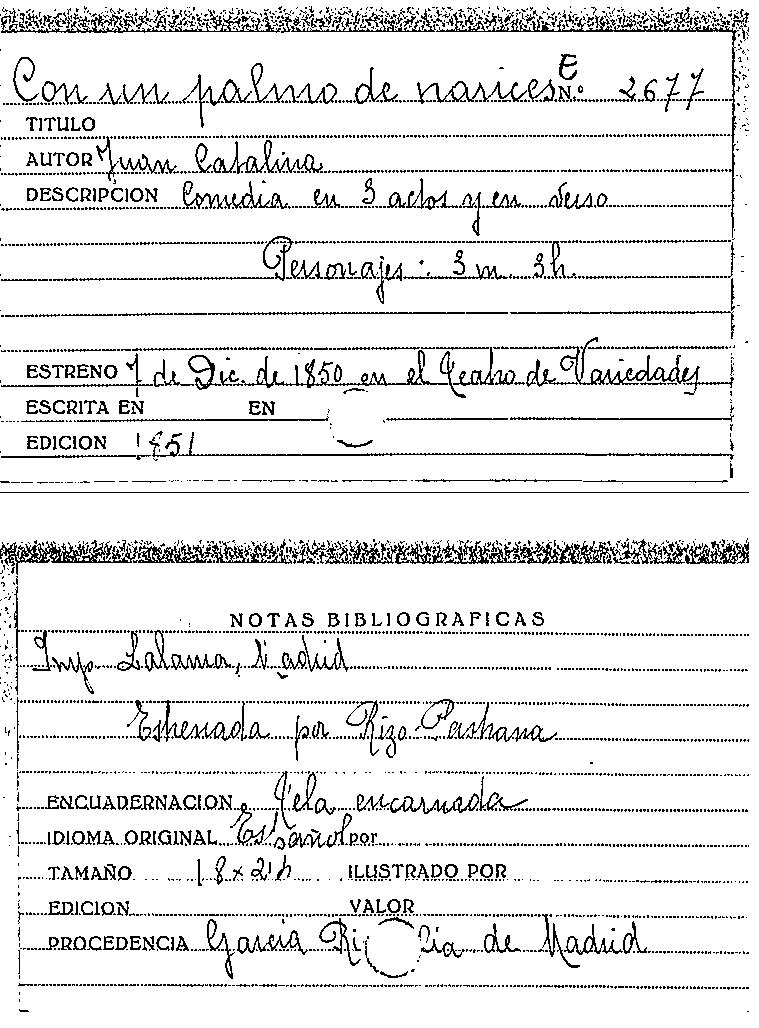 E
Con un palmo de narices N.º 2677
TITULO
AUTOR Juan Catalina
DESCRIPCION Comedia en 3 actos y en verso
Personajes: 3 m. 3 h.
ESTRENO 7 de Dic. de 1850 en el Teatro de Variedades
ESCRITA EN EN
EDICION 1851
NOTAS BIBLIOGRAFICAS
Imp. Lalama, Madrid
Estrenada por Rizo
ENCUADERNACION Tela encarnada
IDIOMA ORIGINAL Español por
TAMAÑO 18 x ILUSTRADO POR
EDICION VALOR
PROCEDENCIA García de Madrid